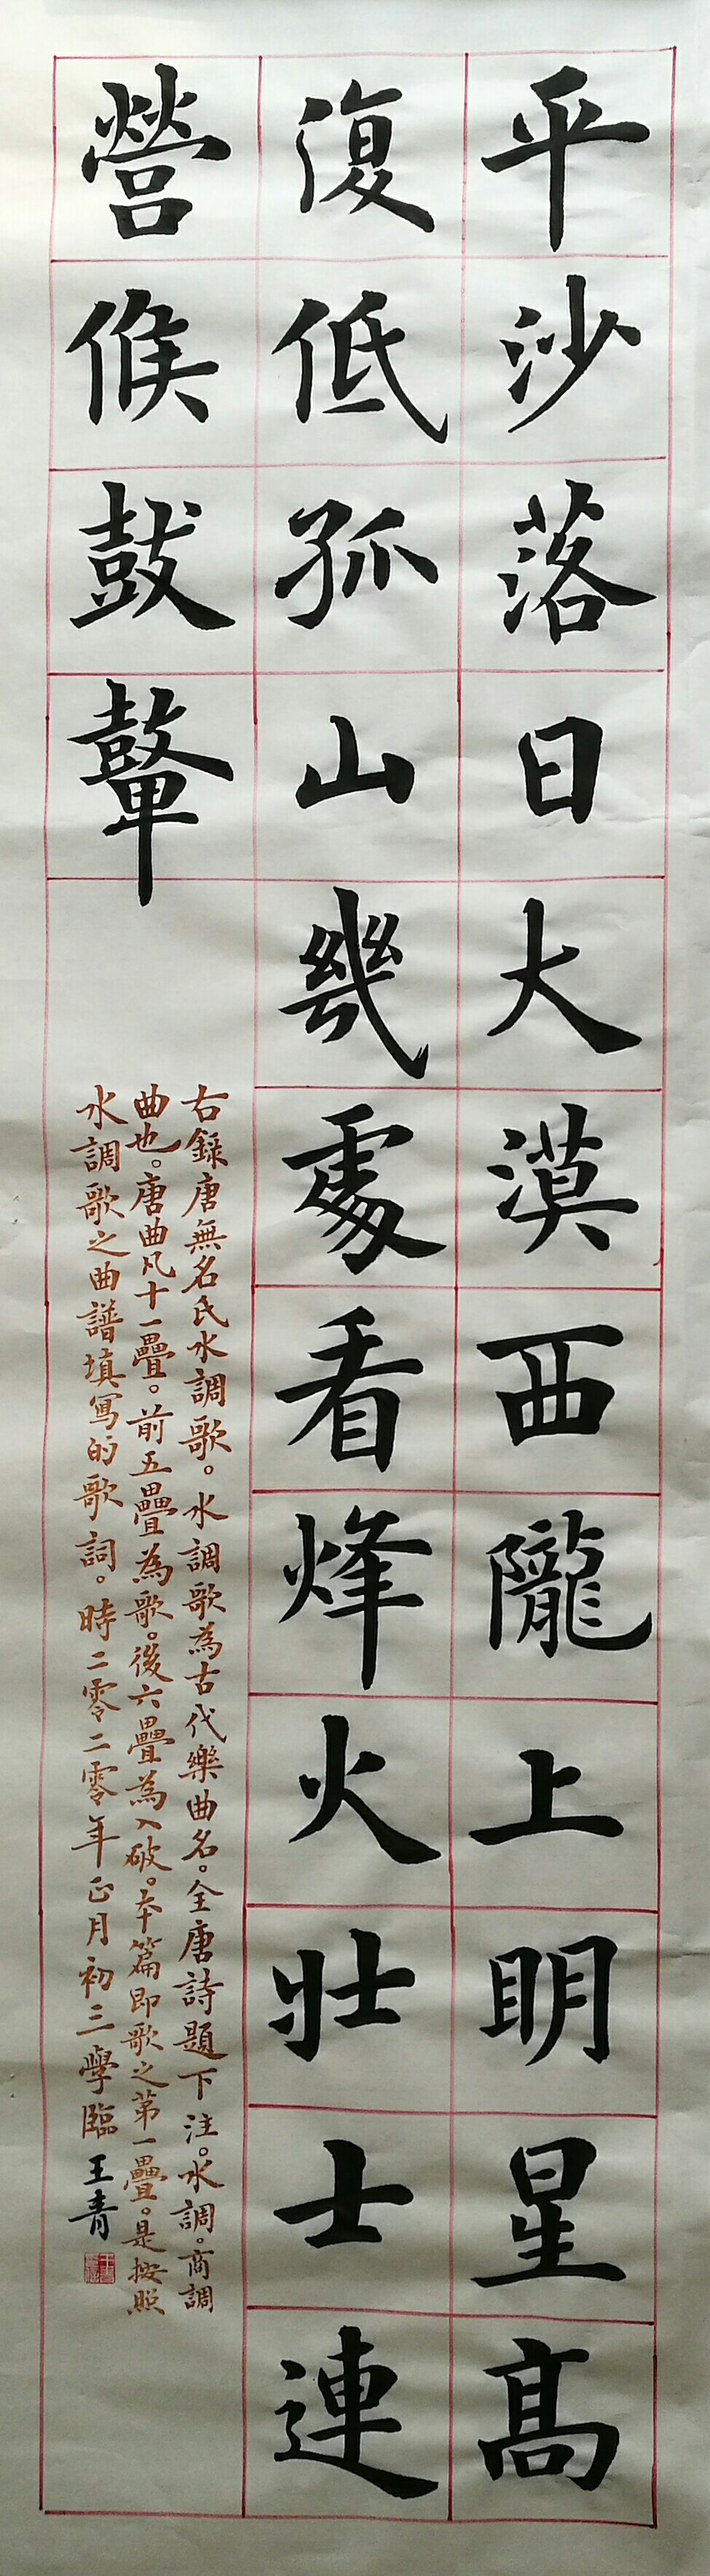 平沙落日大漠西隴上明星高
復低孤山幾處看烽火壯士連
營候鼓鼙
右錄唐無名氏水調歌。水調歌為古代樂曲名。全唐詩題下注。水調。商調
曲也。唐曲凡十一疊。前五疊為歌。後六疊為入破。本篇即歌之第一疊。是按照
水調歌之曲譜填寫的歌詞。時二零二零年正月初三學臨 王青